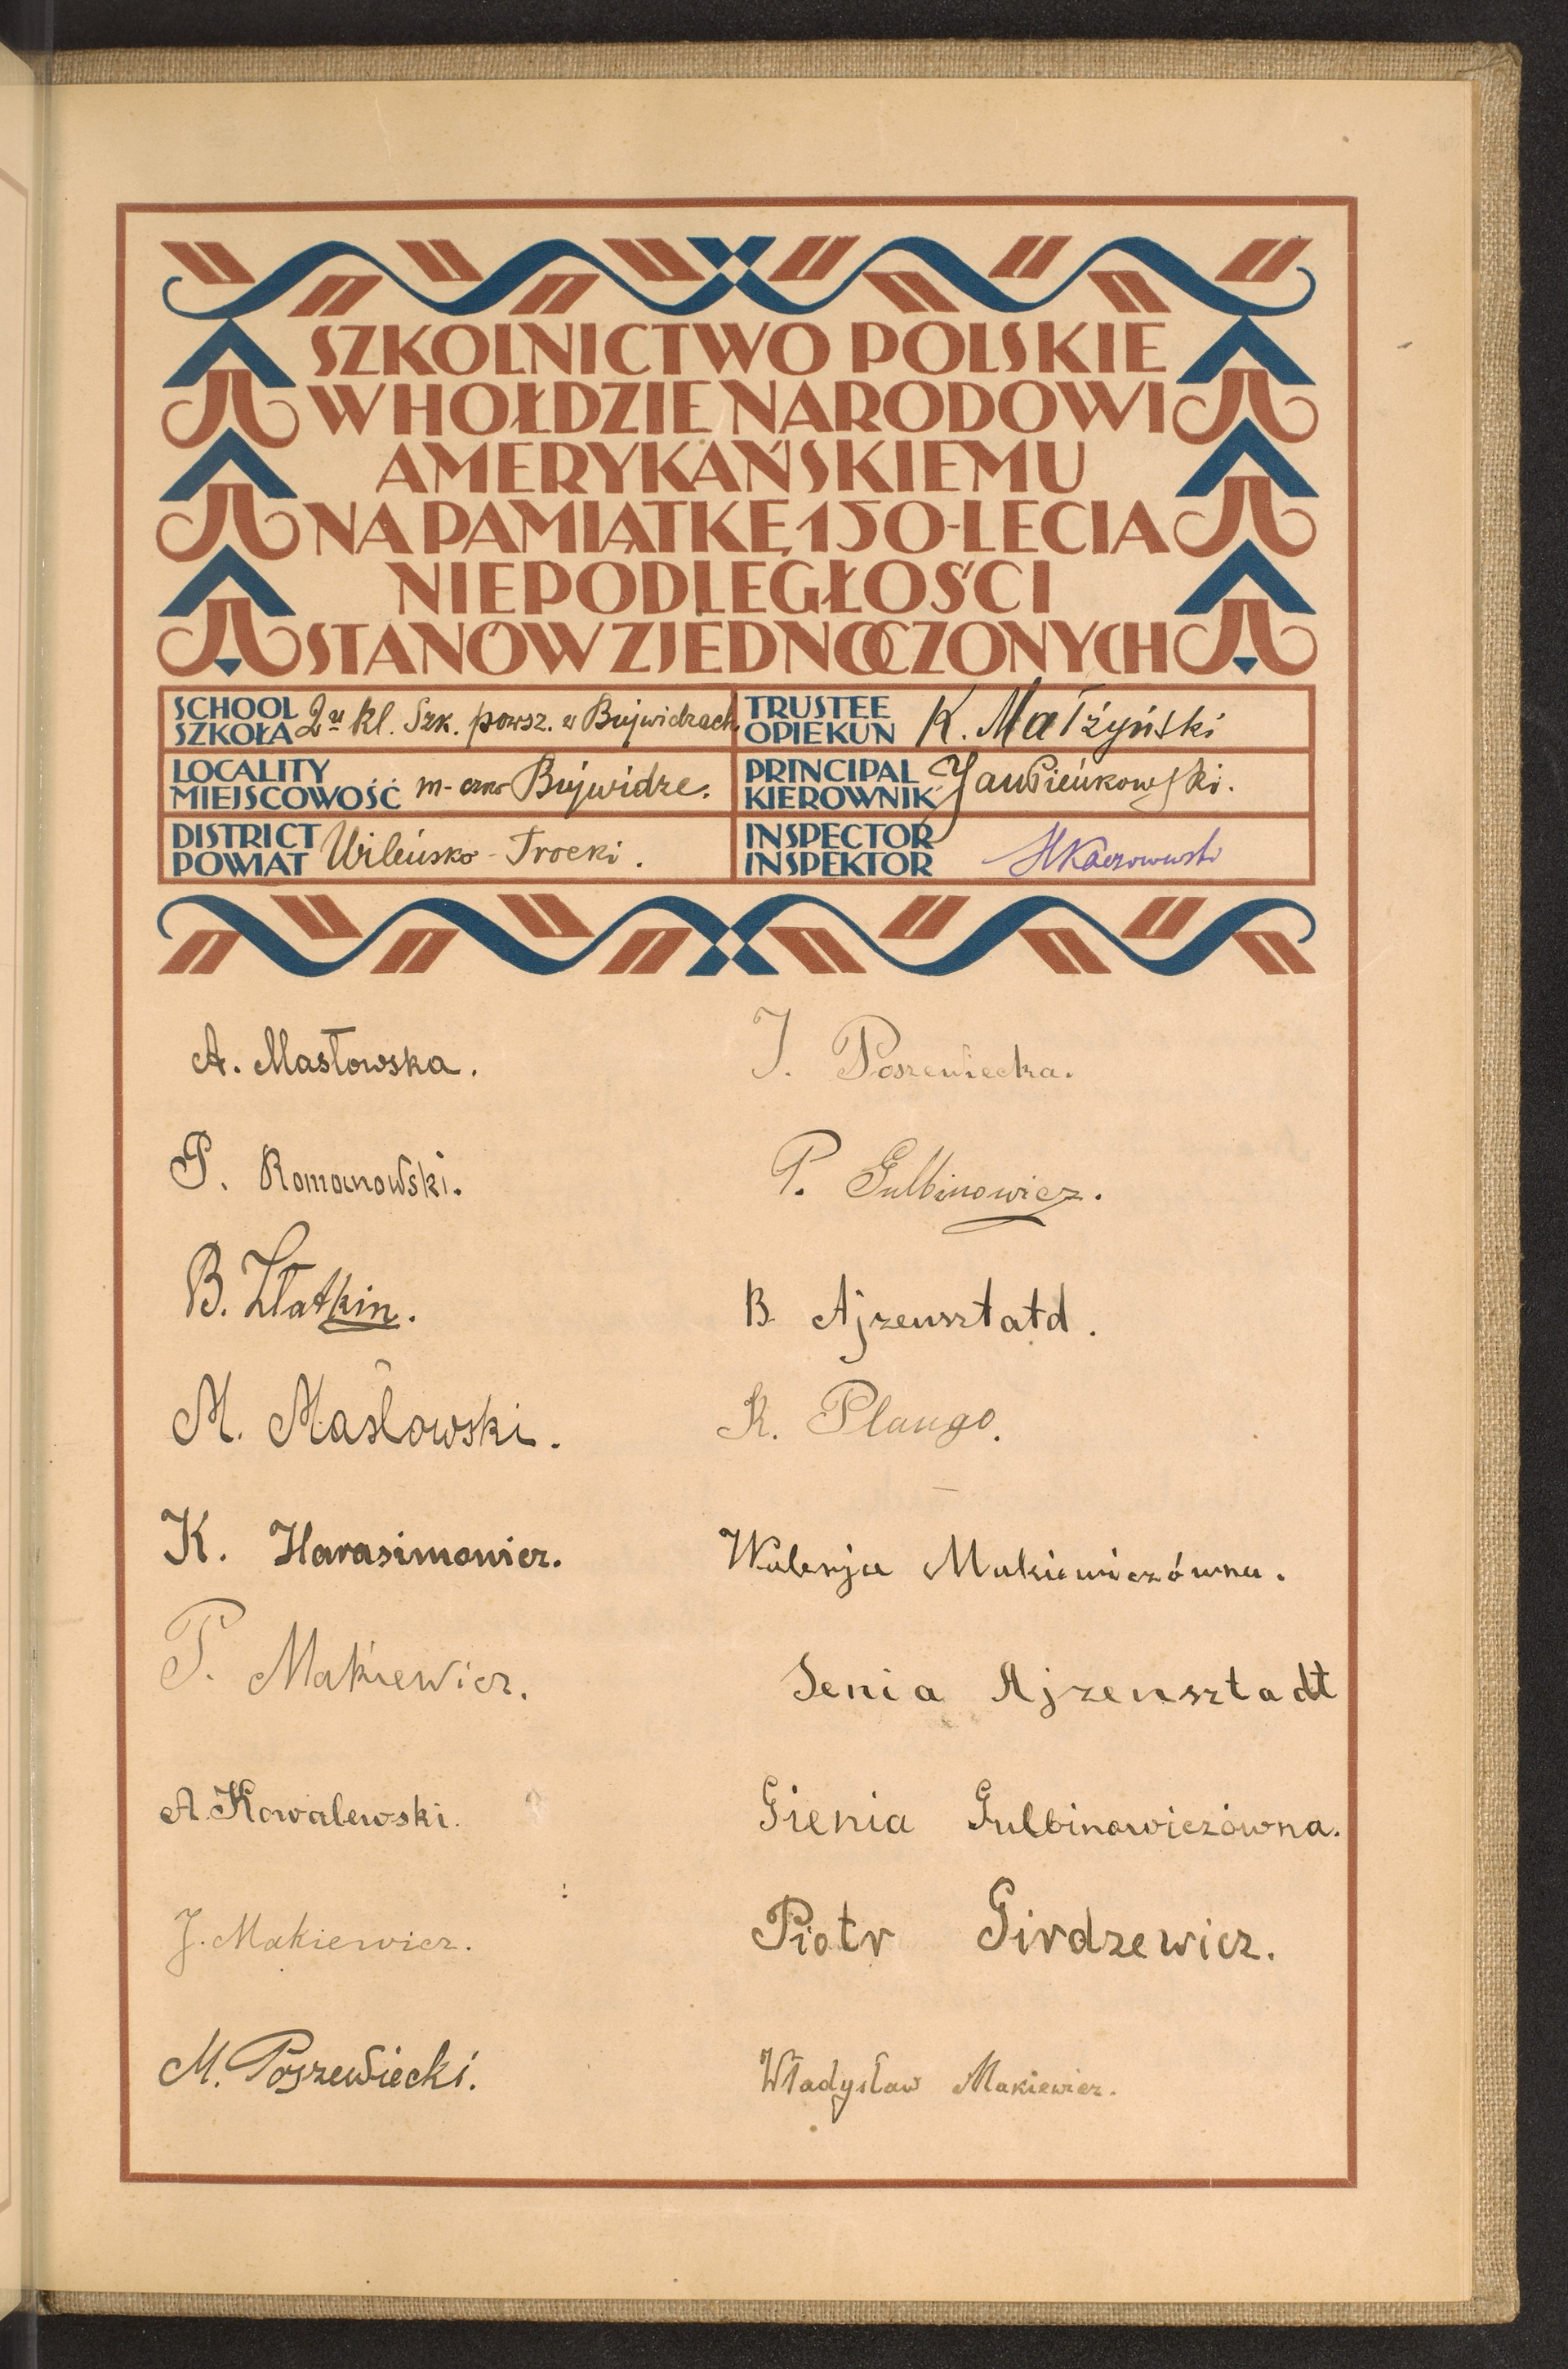 SZKOLNICTWO POLSKIE
W HOŁDZIE NARODOWI
AMERYKAŃSKIEMU
NA PAMIĄTKĘ 150-LECIA
NIEPODLEGŁOŚCI
STANÓW ZJEDNOCZONYCH
SCHOOL
SZKOŁA 2u kl. Szk. powsz. w Bujwidzach
TRUSTEE
OPIEKUN K. Małżyński
LOCALITY
MIEJSCOWOŚĆ Bujwidze.
PRINCIPAL
KIEROWNIK Jan Pieńkowski.
DISTRICT
POWIAT Wileńsko-Trocki.
INSPECTOR
INSPEKTOR
A. Masłowska.
P. Romanowski.
B. Złatkin.
M. Masłowski.
K. Harasimowicz.
P. Makiewicz.
A. Kowalewski.
J. Makiewicz.
M. Poszewiecki.
J. Poszewiecka.
P. Gulbinowicz.
B. Ajzensztatd.
R. Plango.
Walerja Makiewiczówna.
Senia Ajzensztadt
Gienia Gulbinowiczówna.
Piotr Girdzewicz.
Władysław Makiewicz.